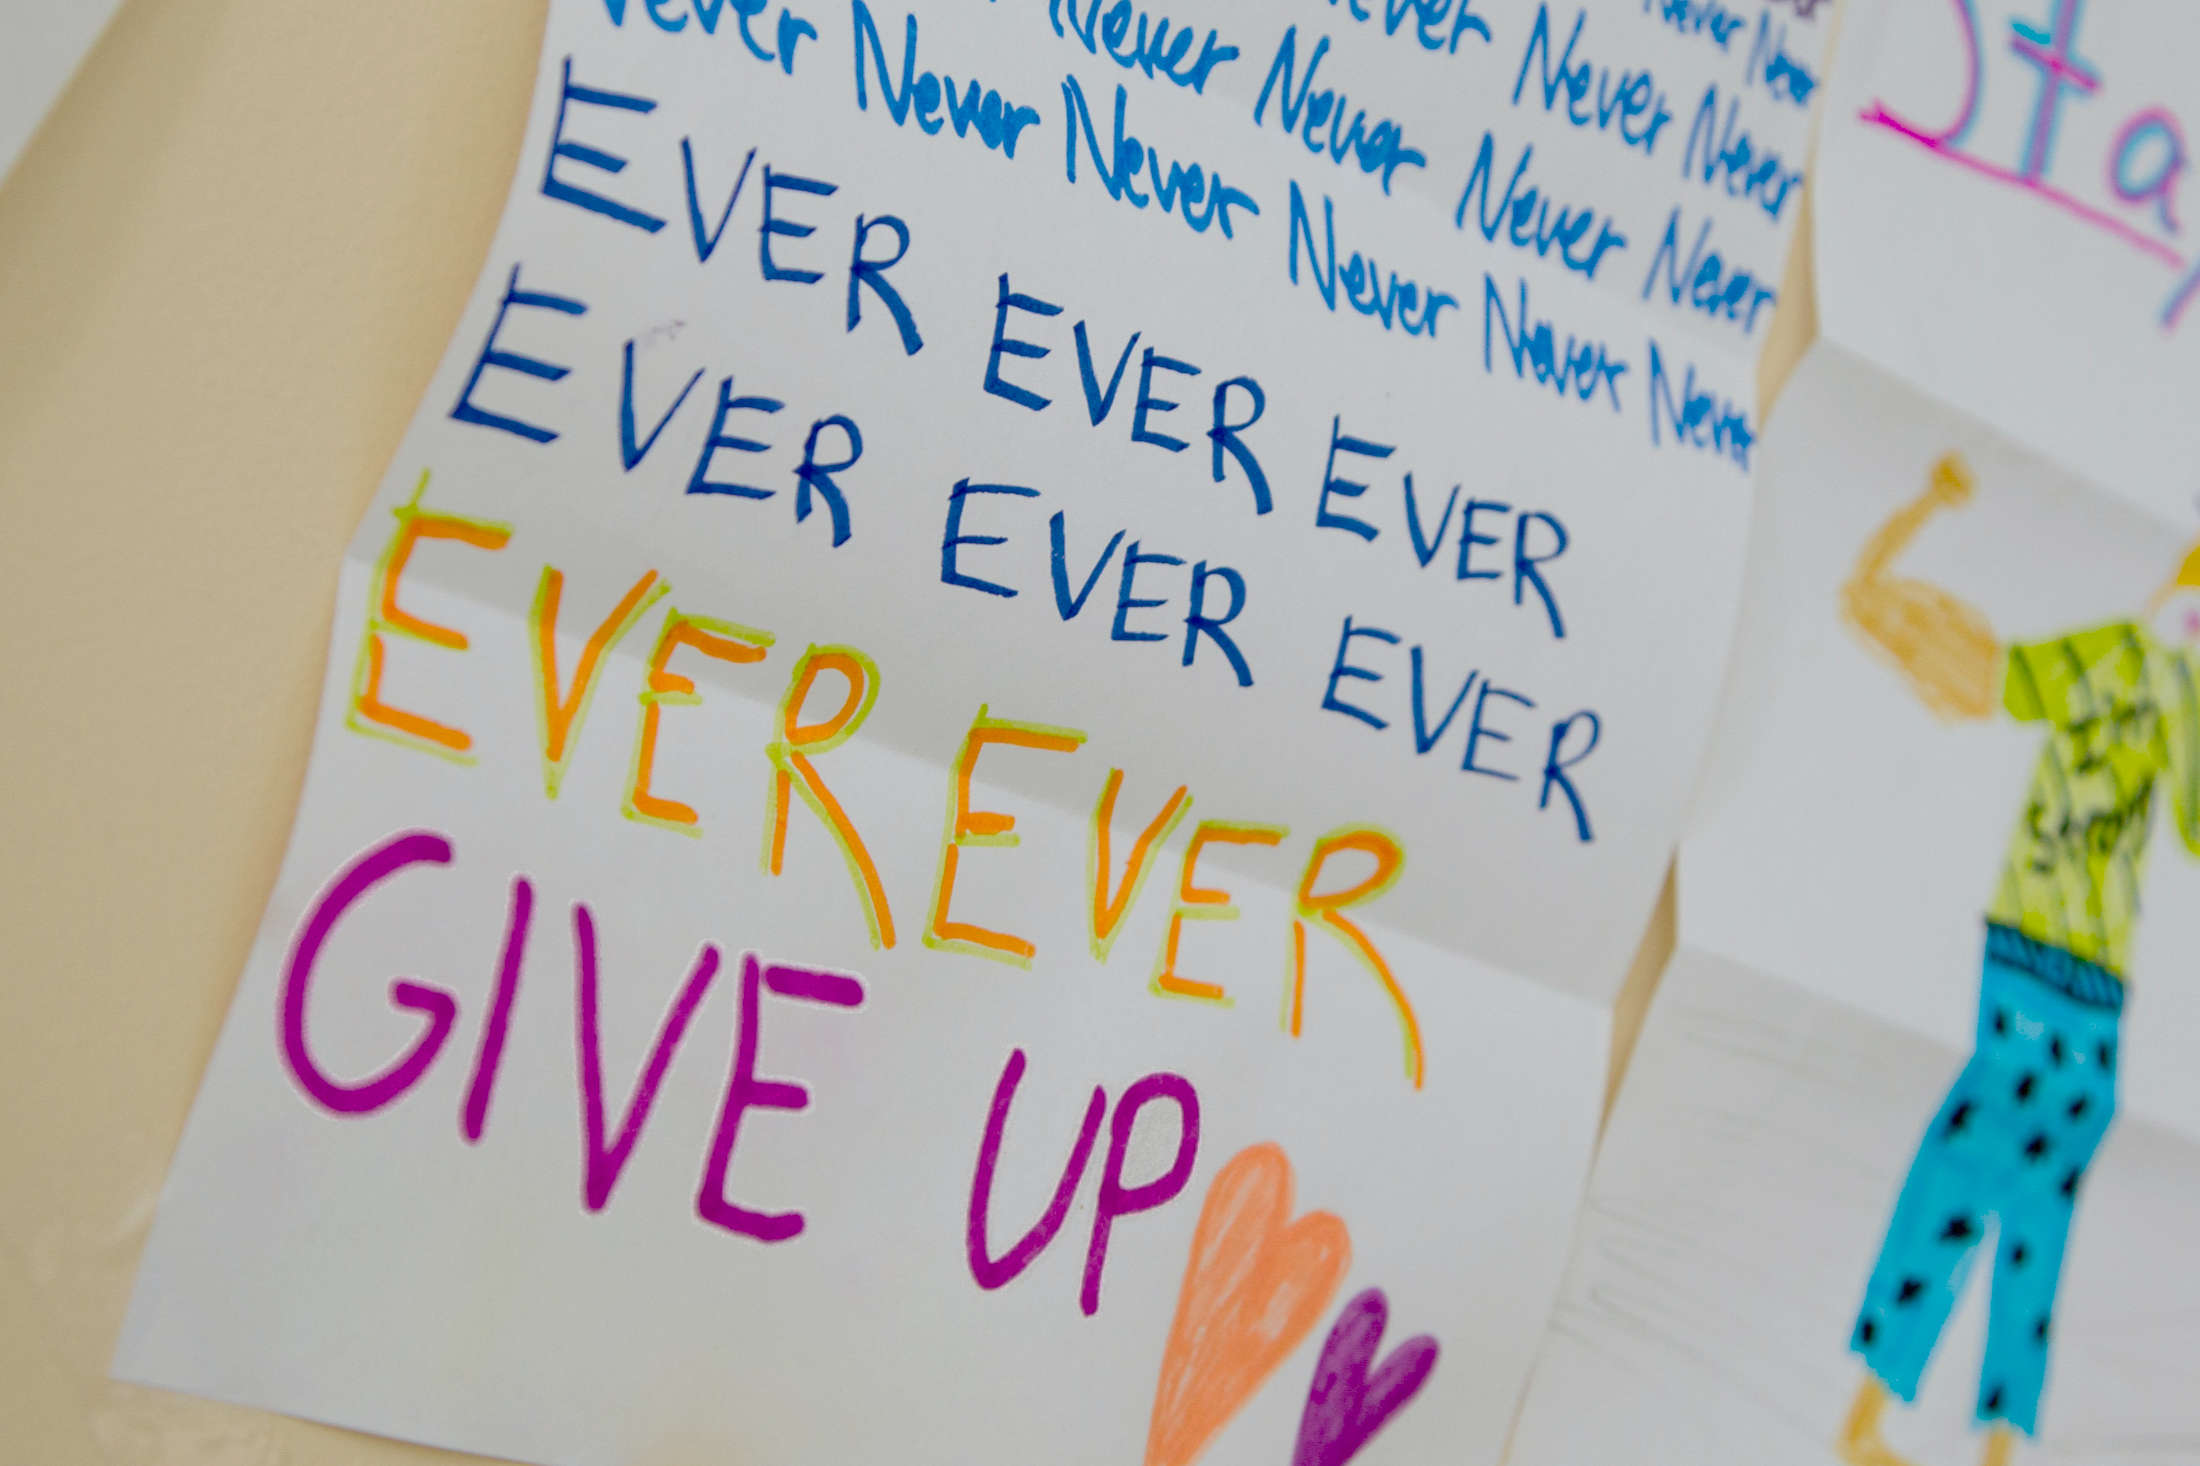 Never Never
Never Never Never
Never Never Never Never
Never Never Never Never Never Never
EVER EVER EVER
EVER EVER EVER
EVER EVER
GIVE UP
Stay
I'm
strong